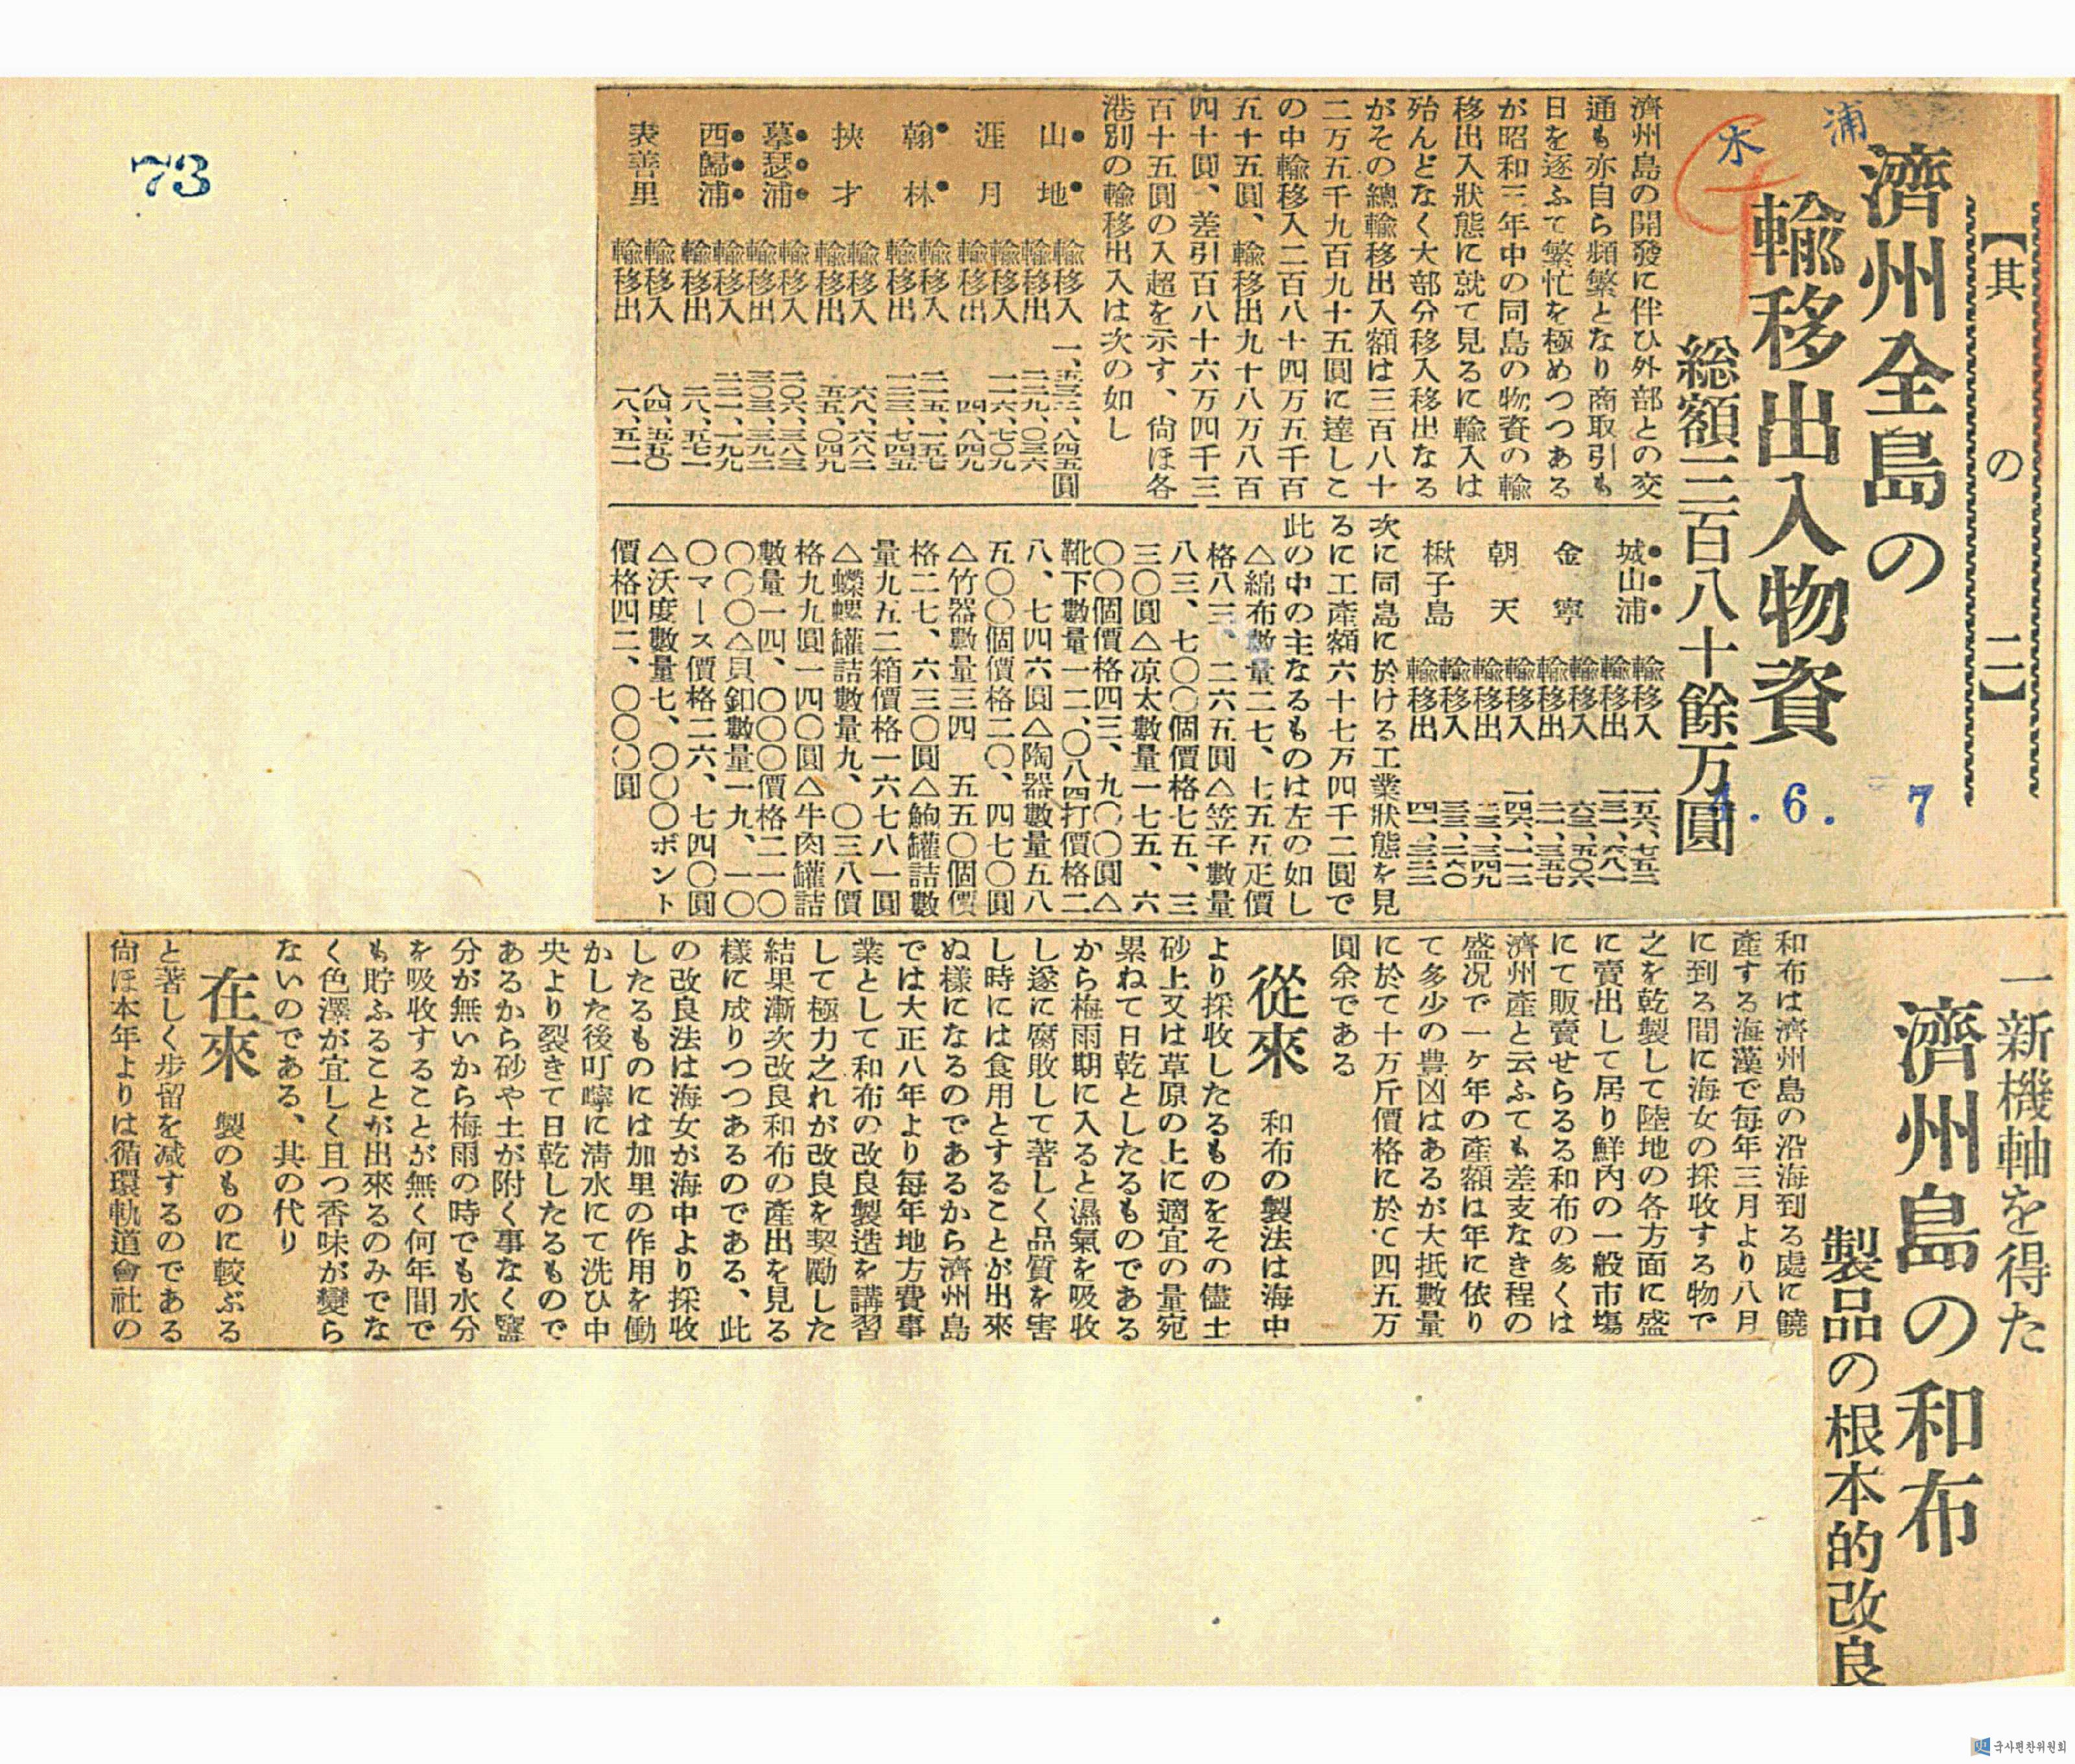 【其の二】
濟州全島の
輸移出入物資
総額三百八十餘万圓
木浦
4.6.7
73
濟州島の開發に伴ひ外部との交
通も亦自ら頻繁となり商取引も
日を逐ふて繁忙を極めつつある
が昭和三年中の同島の物資の輸
移出入狀態に就て見るに輸入は
殆んどなく大部分移入移出なる
がその總輸移出入額は三百八十
二万五千九百九十五圓に達しこ
の中輸移入二百八十四万五千百
五十五圓、輸移出九十八万八百
四十圓、差引百八十六万四千三
百十五圓の入超を示す、尙ほ各
港別の輸移出入は次の如し
山地 輸移入 一、五三二、八四五圓
輸移出 二二九、〇三六
涯月 輸移入 一二六、七〇九
輸移出 四、八四九
翰林 輸移入 二一五、一五七
輸移出 一三三、七四五
挾才 輸移入 六八、六八二
輸移出 五五、〇四九
慕瑟浦 輸移入 二〇六、三八三
輸移出 三〇三、三九二
西歸浦 輸移入 二三一、一九九
輸移出 二八、五七一
表善里 輸移入 八四、五五〇
輸移出 一八、五二一
城山浦 輸移入 一五六、七五三
輸移出 一三一、六八一
金寧 輸移入 六三、五〇六
輸移出 二一、三五七
朝天 輸移入 一四六、一一二
輸移出 二三、三四九
楸子島 輸移入 三三、二六〇
輸移出 四一、三三二
次に同島に於ける工業狀態を見
るに工產額六十七万四千二圓で
此の中の主なるものは左の如し
△綿布數量二七、七五五疋價
格八三、二六五圓△笠子數量
八三、七〇〇個價格七五、三
三〇圓△凉太數量一七五、六
〇〇個價格四三、九〇〇圓△
靴下數量一二、〇八四打價格二
八、七四六圓△陶器數量五八
五〇〇個價格二〇、四七〇圓
△竹器數量三四 五五〇個價
格二七、六三〇圓△鮑罐詰數
量九五二箱價格一六七八一圓
△蠑螺罐詰數量九、〇三八價
格九九圓一四〇圓△牛肉罐詰
數量一四、〇〇〇價格二一〇
〇〇〇△貝釦數量一九、一〇
〇マース價格二六、七四〇圓
△沃度數量七、〇〇〇ポント
價格四二、〇〇〇圓
一新機軸を得た
濟州島の和布
製品の根本的改良
和布は濟州島の沿海到る處に饒
產する海漢で每年三月より八月
に到る間に海女の採收する物で
之を乾製して陸地の各方面に盛
に賣出して居り鮮內の一般市塲
にて販賣せらるる和布の多くは
濟州產と云ふても差支なき程の
盛况で一ヶ年の產額は年に依り
て多少の豊凶はあるが大抵數量
に於て十万斤價格に於て四五万
圓余である
從來 和布の製法は海中
より採收したるものをその儘土
砂上又は草原の上に適宜の量宛
累ねて日乾としたるものである
から梅雨期に入ると濕氣を吸收
し遂に腐敗して著しく品質を害
し時には食用とすることが出來
ぬ樣になるのであるから濟州島
では大正八年より每年地方費事
業として和布の改良製造を講習
して極力之れが改良を契勵した
結果漸次改良和布の產出を見る
樣に成りつつあるのである、此
の改良法は海女が海中より採收
したるものには加里の作用を働
かした後叮嚀に淸水にて洗ひ中
央より裂きて日乾したるもので
あるから砂や土が附く事なく鹽
分が無いから梅雨の時でも水分
を吸收することが無く何年間で
も貯ふることが出來るのみでな
く色澤が宜しく且つ香味が變ら
ないのである、其の代り
在來 製のものに較ぶる
と著しく步留を减するのである
尙ほ本年よりは循環軌道會社の
국사편찬위원회